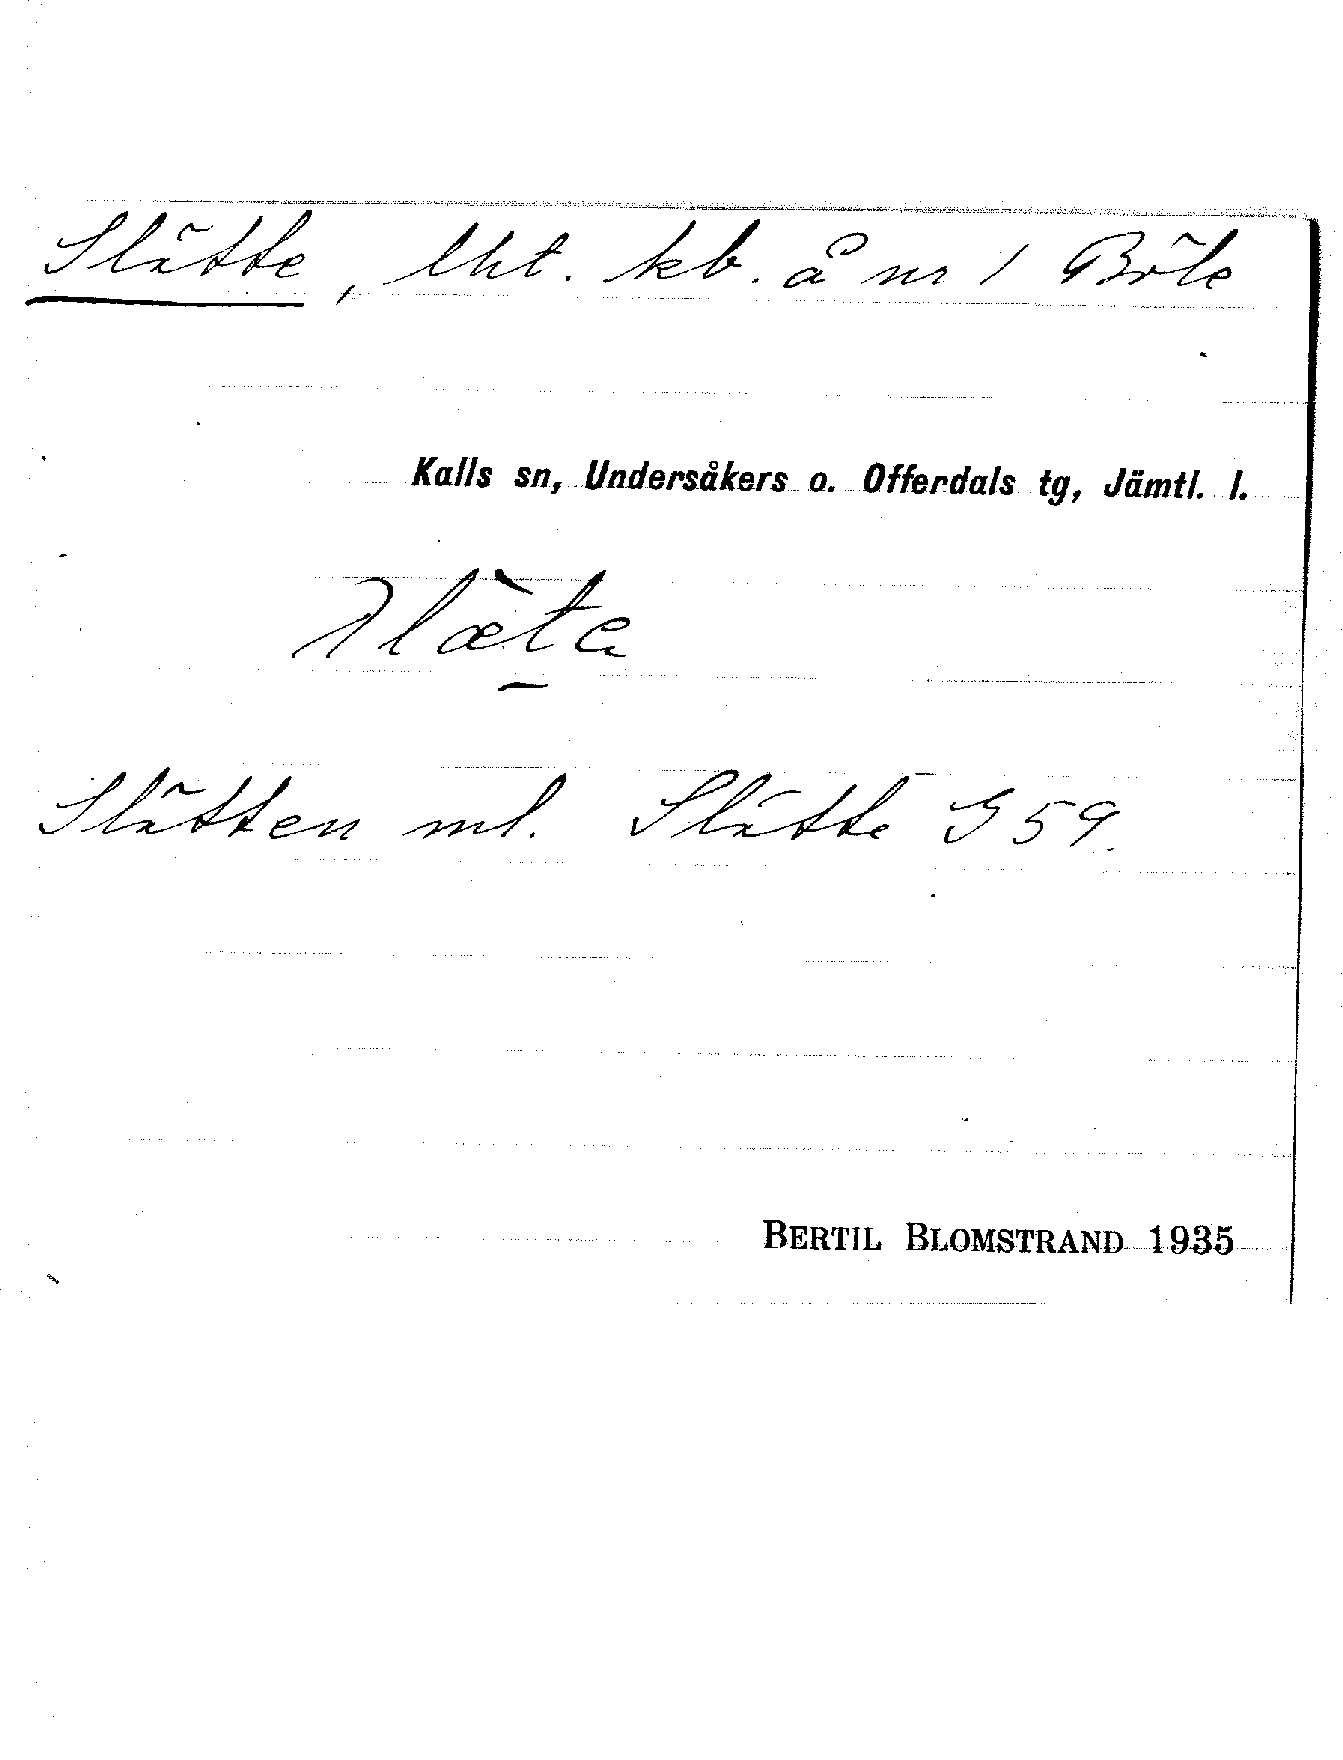 Slätte, lht. kb. å nr 1 Böle
Kalls sn, Undersåkers o. Offerdals tg, Jämtl. l.
Slätten ml. Slätte G 59.
BERTIL BLOMSTRAND 1935